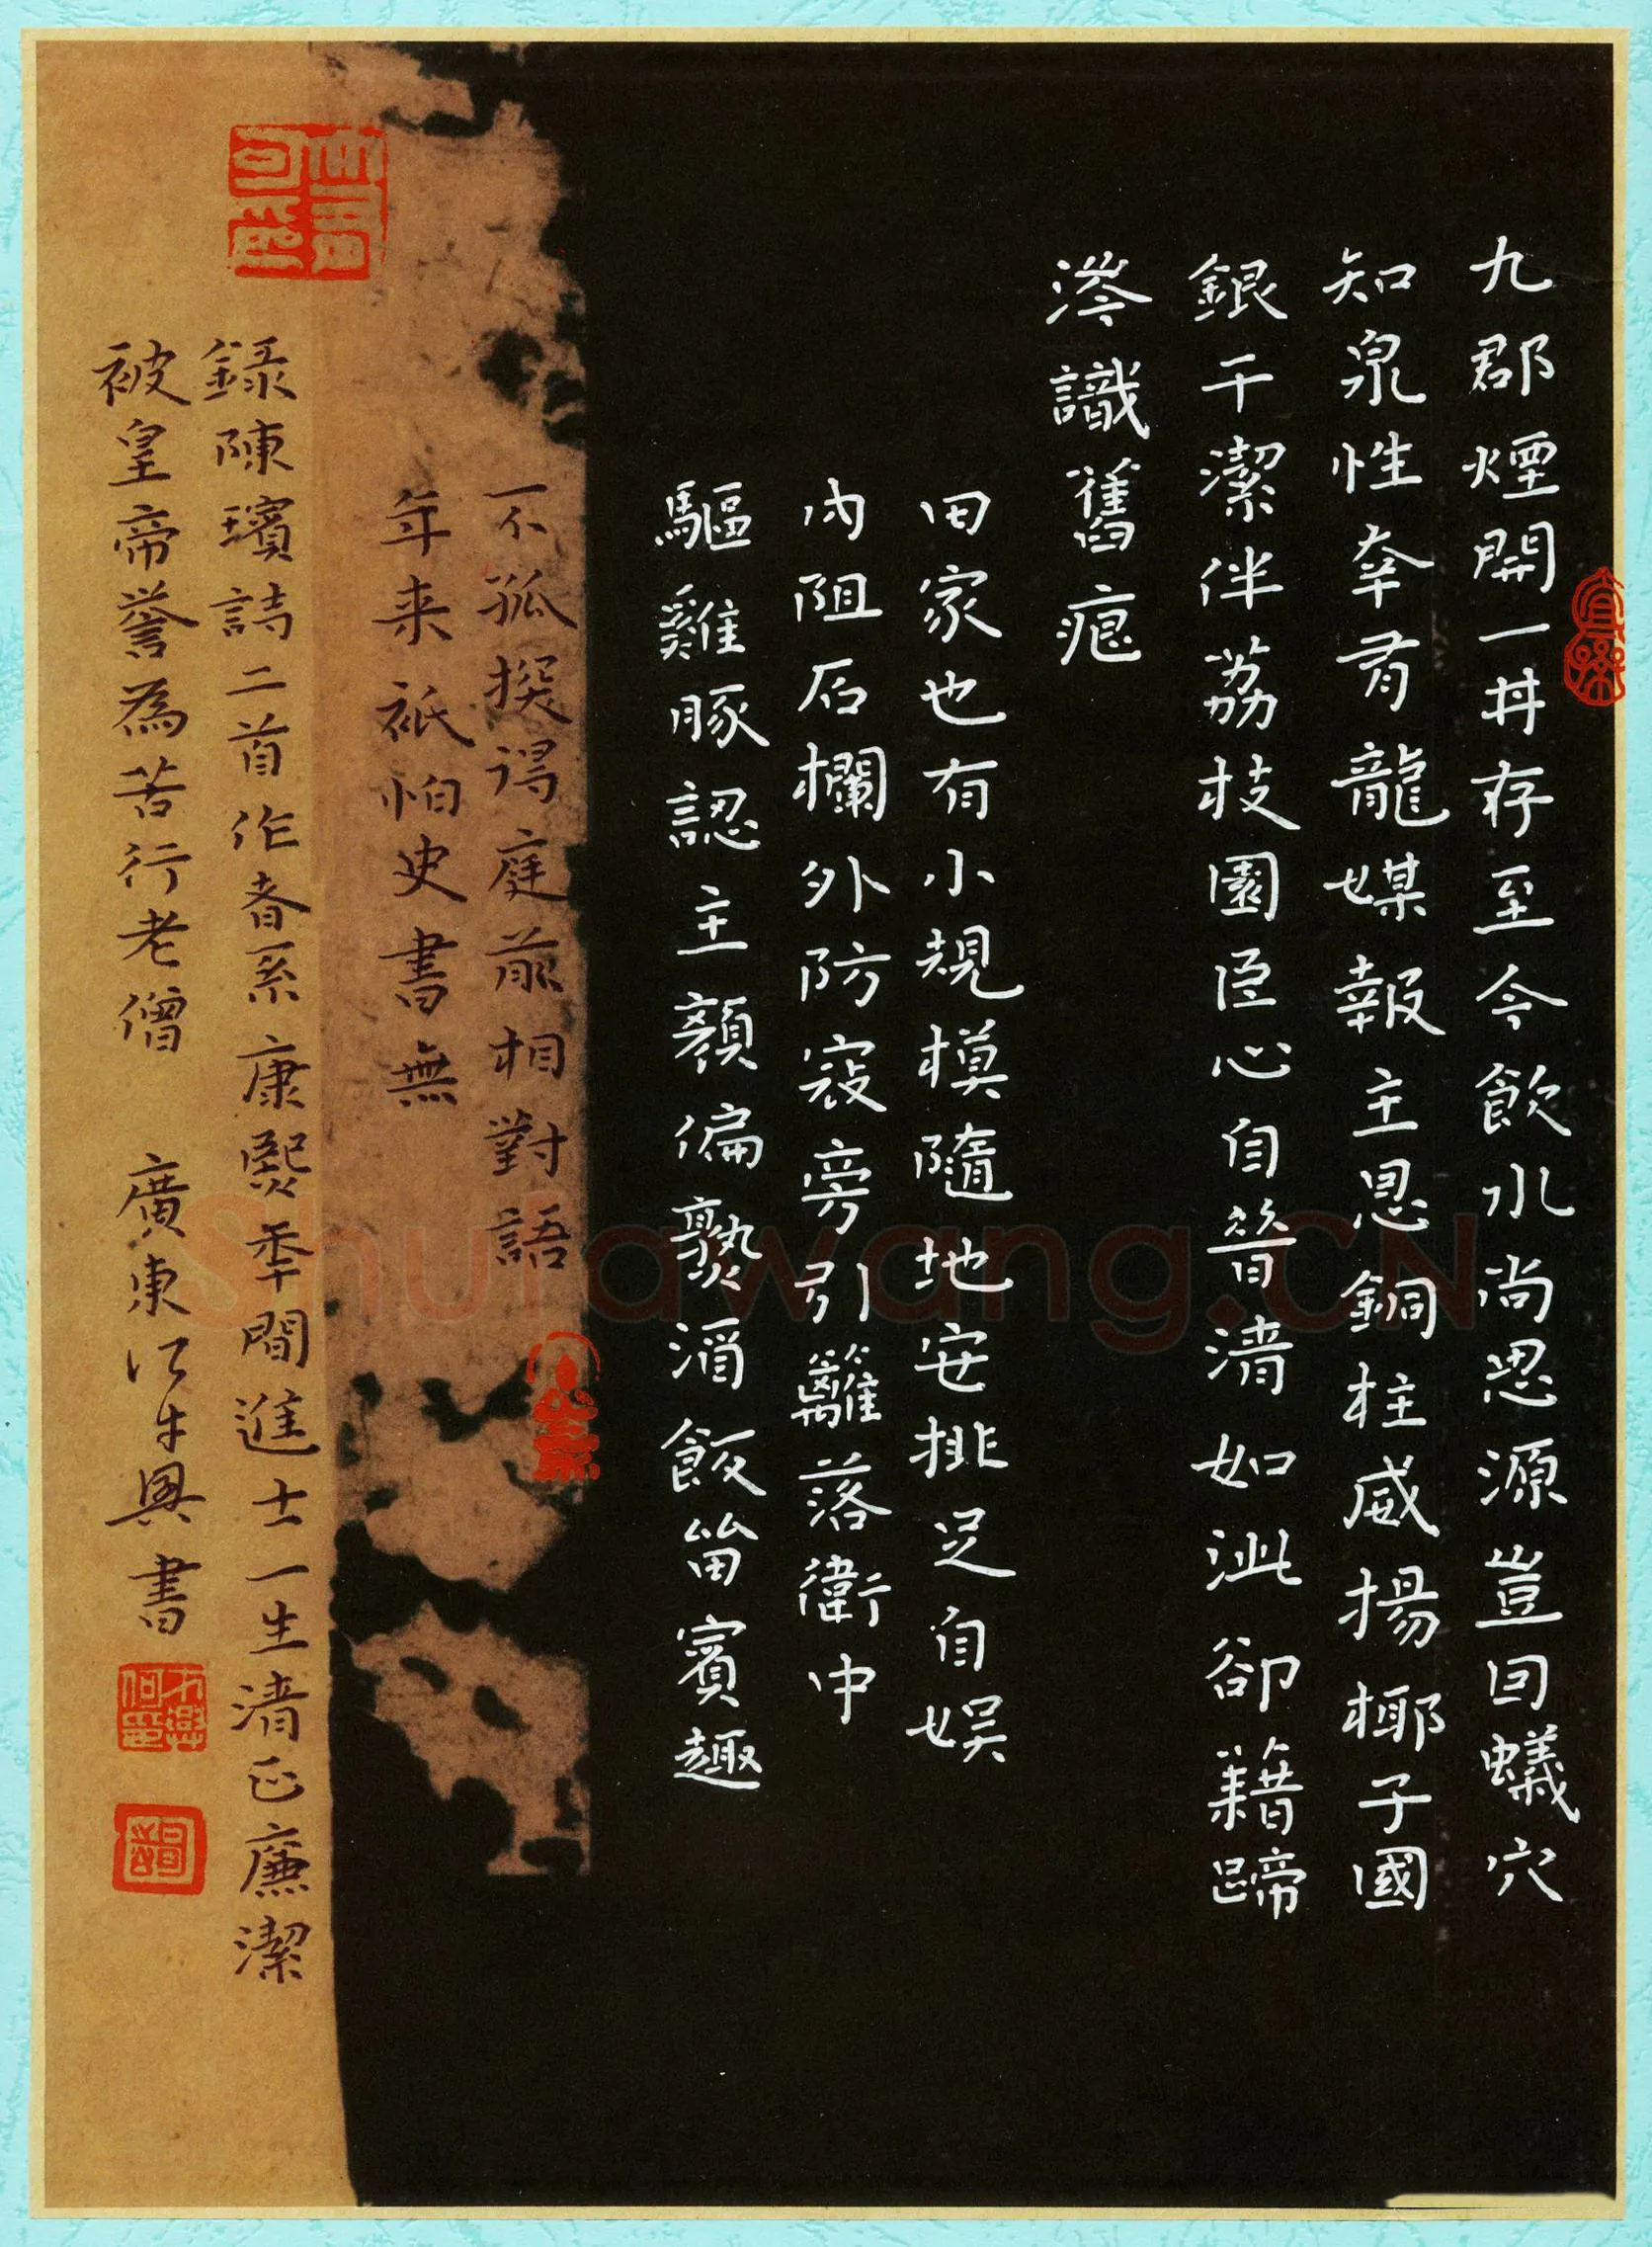 九郡煙開一井存至今飲水尚思源豈因蟻穴
知泉性幸有龍媒報主恩銅柱威揚椰子國
銀干潔伴荔枝園臣心自昔清如沚卻藉蹄
涔識舊痕
田家也有小規模隨地安排足自娛
內阻石欄外防寇旁引籬落衛中
驅雞豚認主顏偏熟酒飯留賓趣
不孤撰得庭前相對語
年来祇怕史書無
錄陳璸詩二首作者系康熙年間進士一生清正廉潔
被皇帝譽為苦行老僧 廣東 興書
Shufawang.CN